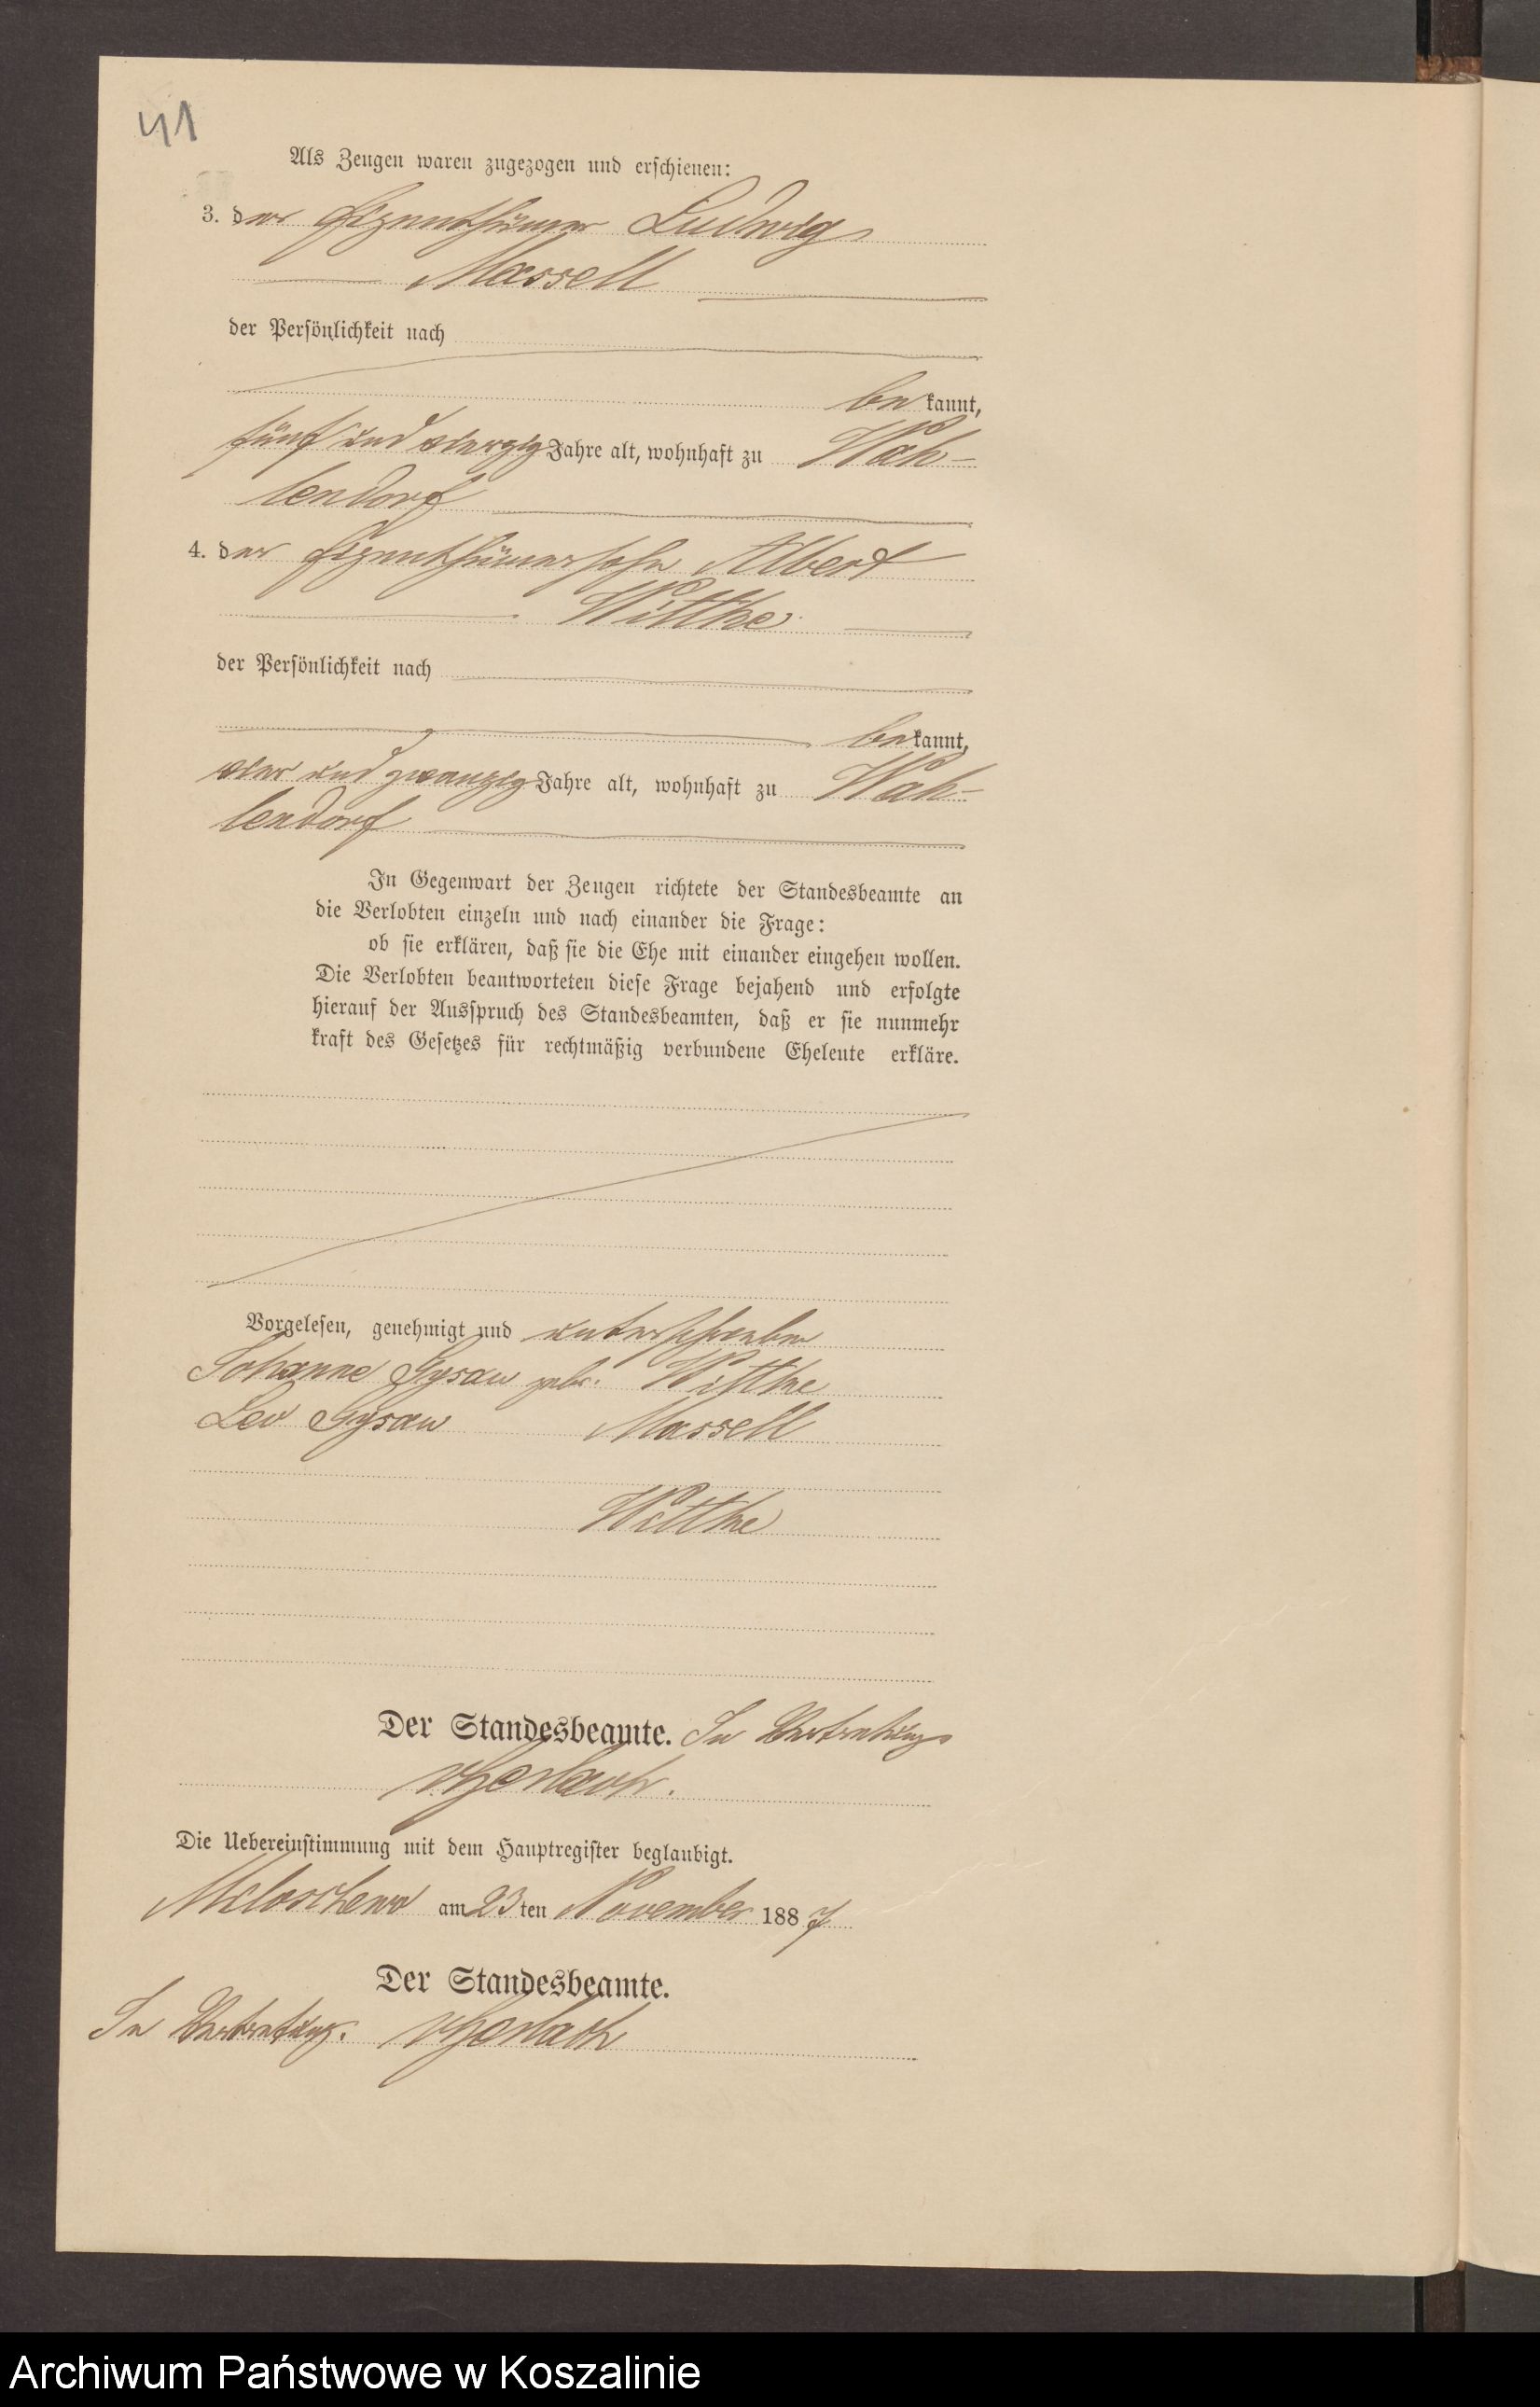 41
Als Zeugen waren zugezogen und erschienen:
3. der Eigenthümer Ludwig
Massell
der Persönlichkeit nach
bekannt,
fünf und vierzig Jahre alt, wohnhaft zu Wah-
lendorf
4. der Eigenthümersohn Albert
Witthe
der Persönlichkeit nach
bekannt,
vier und zwanzig Jahre alt, wohnhaft zu Wah-
lendorf
In Gegenwart der Zeugen richtete der Standesbeamte an
die Verlobten einzeln und nach einander die Frage:
ob sie erklären, daß sie die Ehe mit einander eingehen wollen.
Die Verlobten beantworteten diese Frage bejahend und erfolgte
hierauf der Ausspruch des Standesbeamten, daß er sie nunmehr
kraft des Gesetzes für rechtmäßig verbundene Eheleute erkläre.
Vorgelesen, genehmigt und unterschrieben
Johanne Gysau geb. Witthe
Leo Gysau Massell
Witthe
Der Standesbeamte. In Vertretung
Die Uebereinstimmung mit dem Hauptregister beglaubigt.
Miloschewo am 23 ten November 1887
Der Standesbeamte.
In Vertretung.
Archiwum Państwowe w Koszalinie